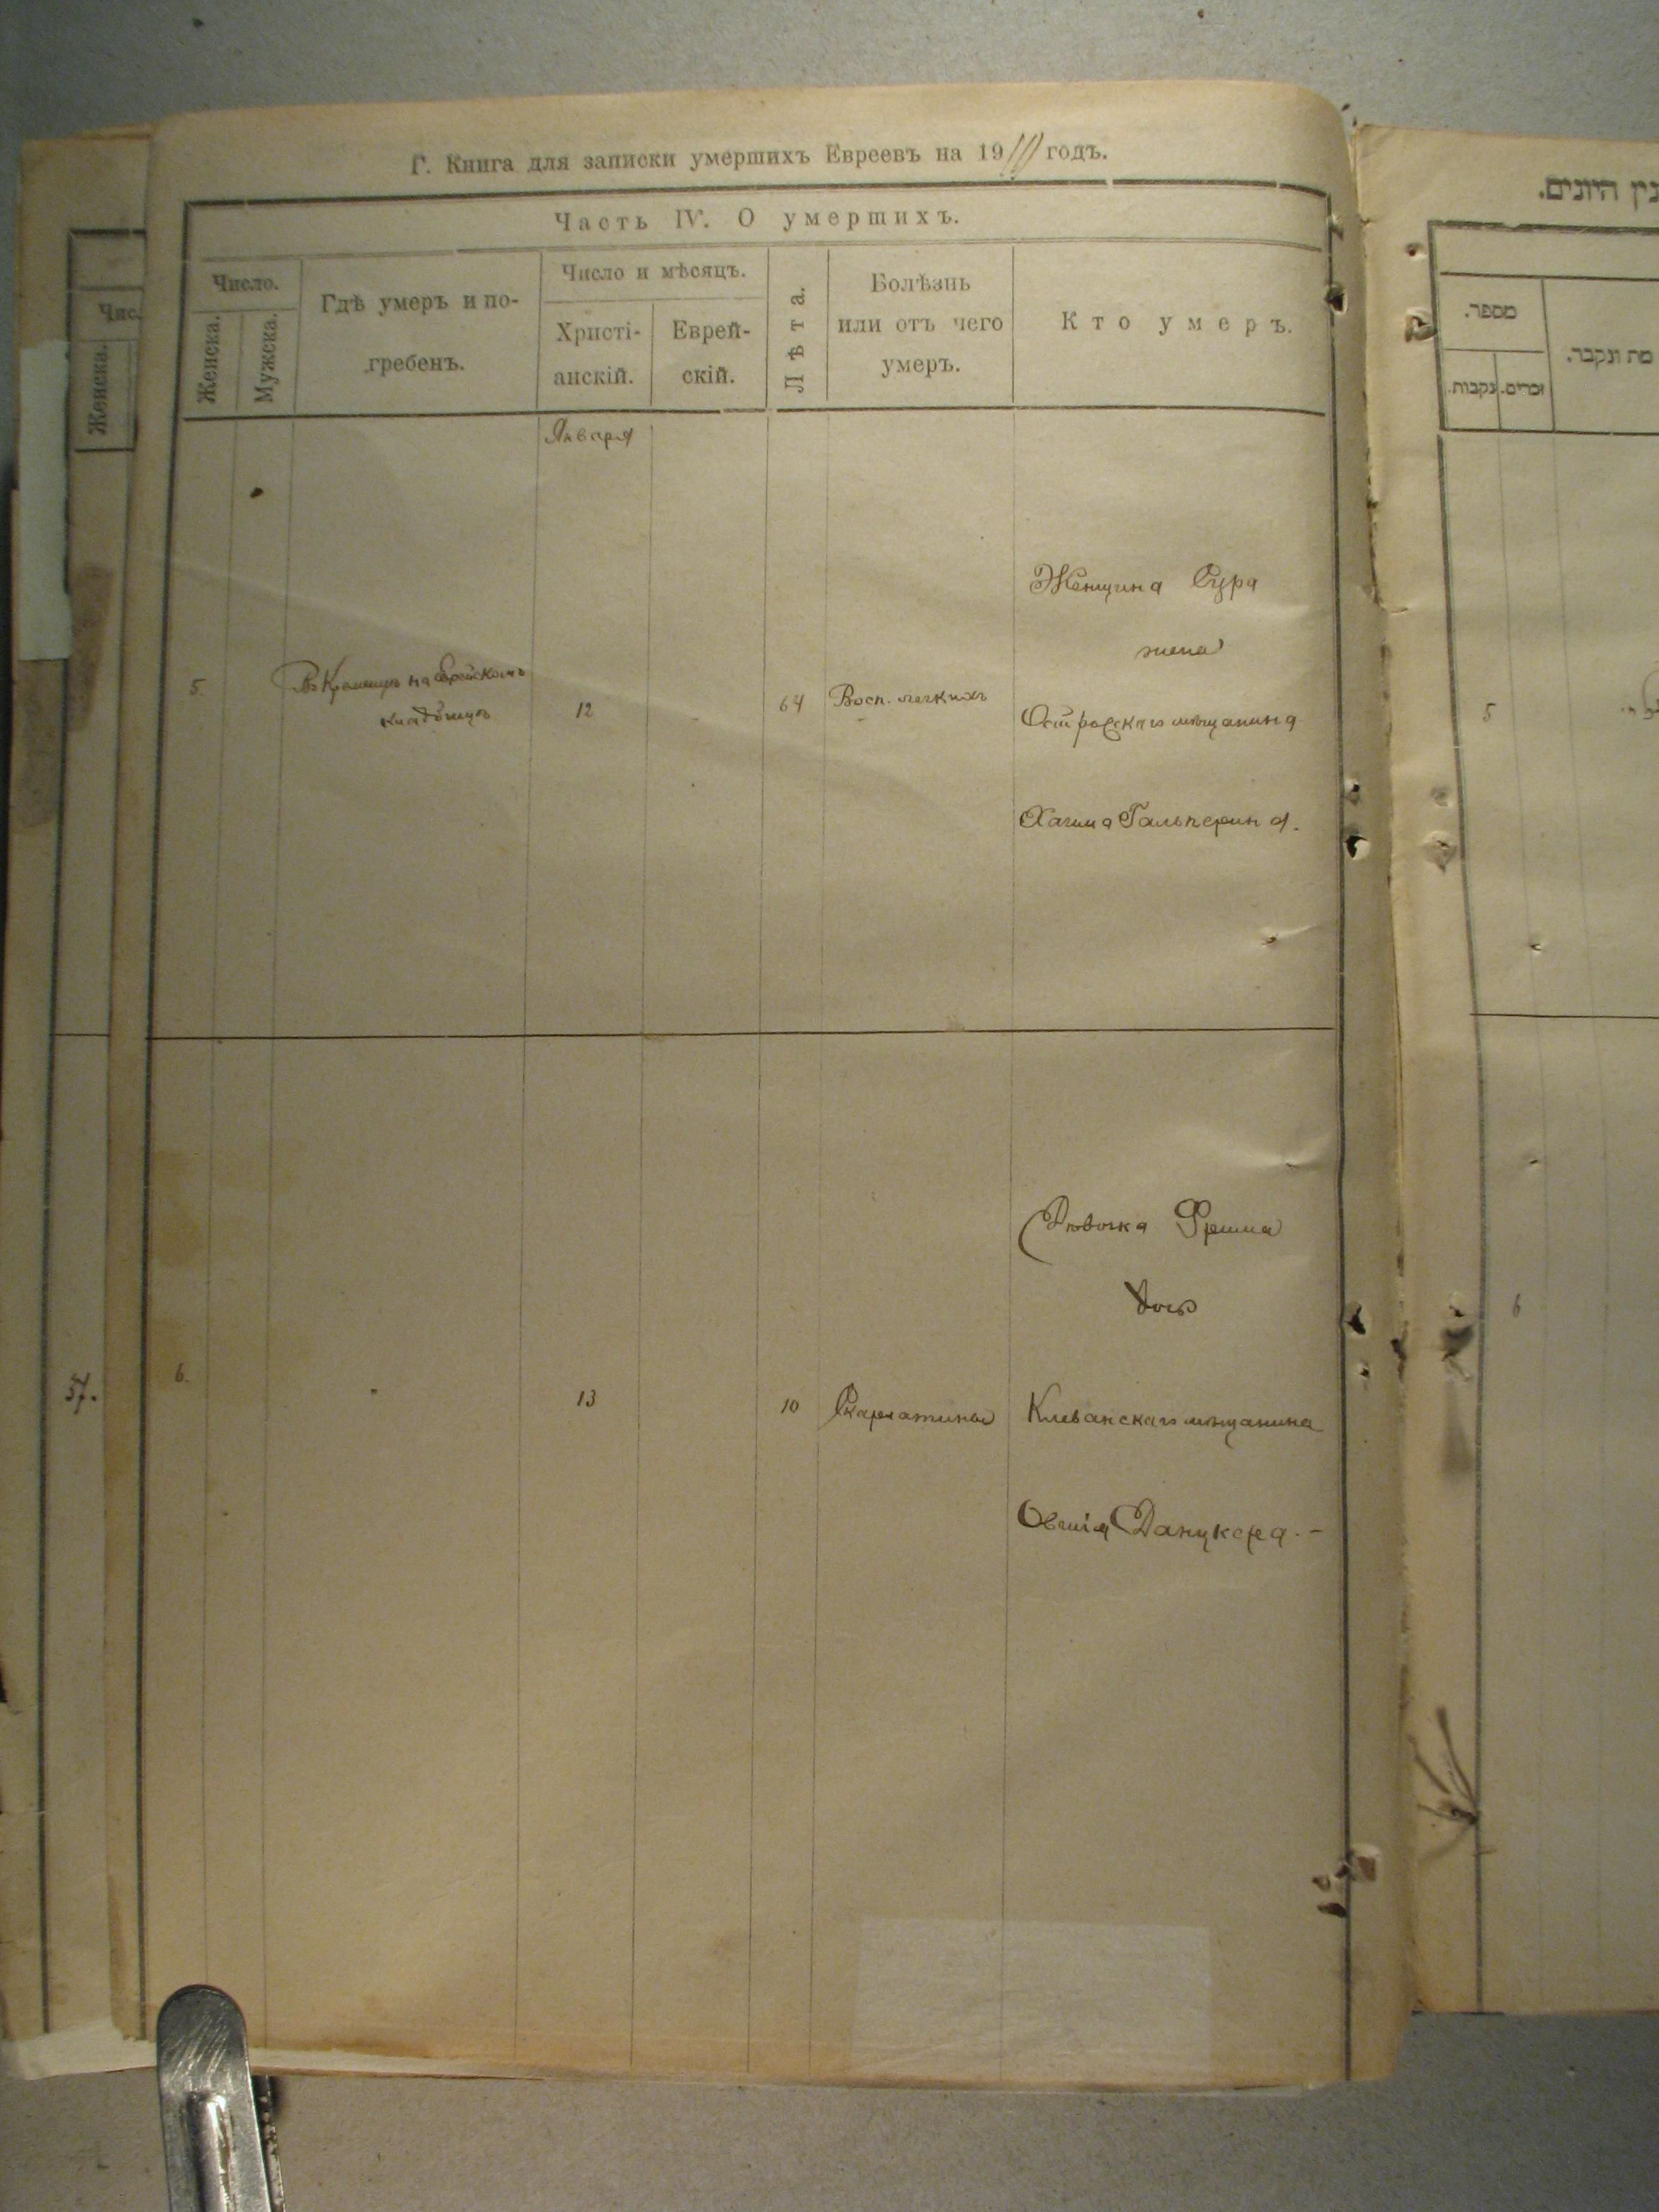 Г. Книга для записки умершихъ Евреевъ на 19 годъ.
Часть IV. О умершихъ.
Число.
Женска.
Мужска.
Гдѣ умеръ и по-
гребенъ.
Число и мѣсяцъ.
Христі-
анскій.
Еврей-
скій.
Лѣта.
Болѣзнь
или отъ чего
умеръ.
Кто умеръ.
Января
5
Въ Кременцѣ на Еврейскомъ
кладбищѣ
12
64
Восп. легкихъ
Женщина Сура
жена
Острогскаго мѣщанина
Хаима Гальперина.
6.
13
10
Скарлатины
Дѣвочка
дочь
Клеванскаго мѣщанина
Овшія Данцкера.-
57.
Чис
Женска.
מספר.
נקבות.
זכרים.
מת ונקבר.
5
6